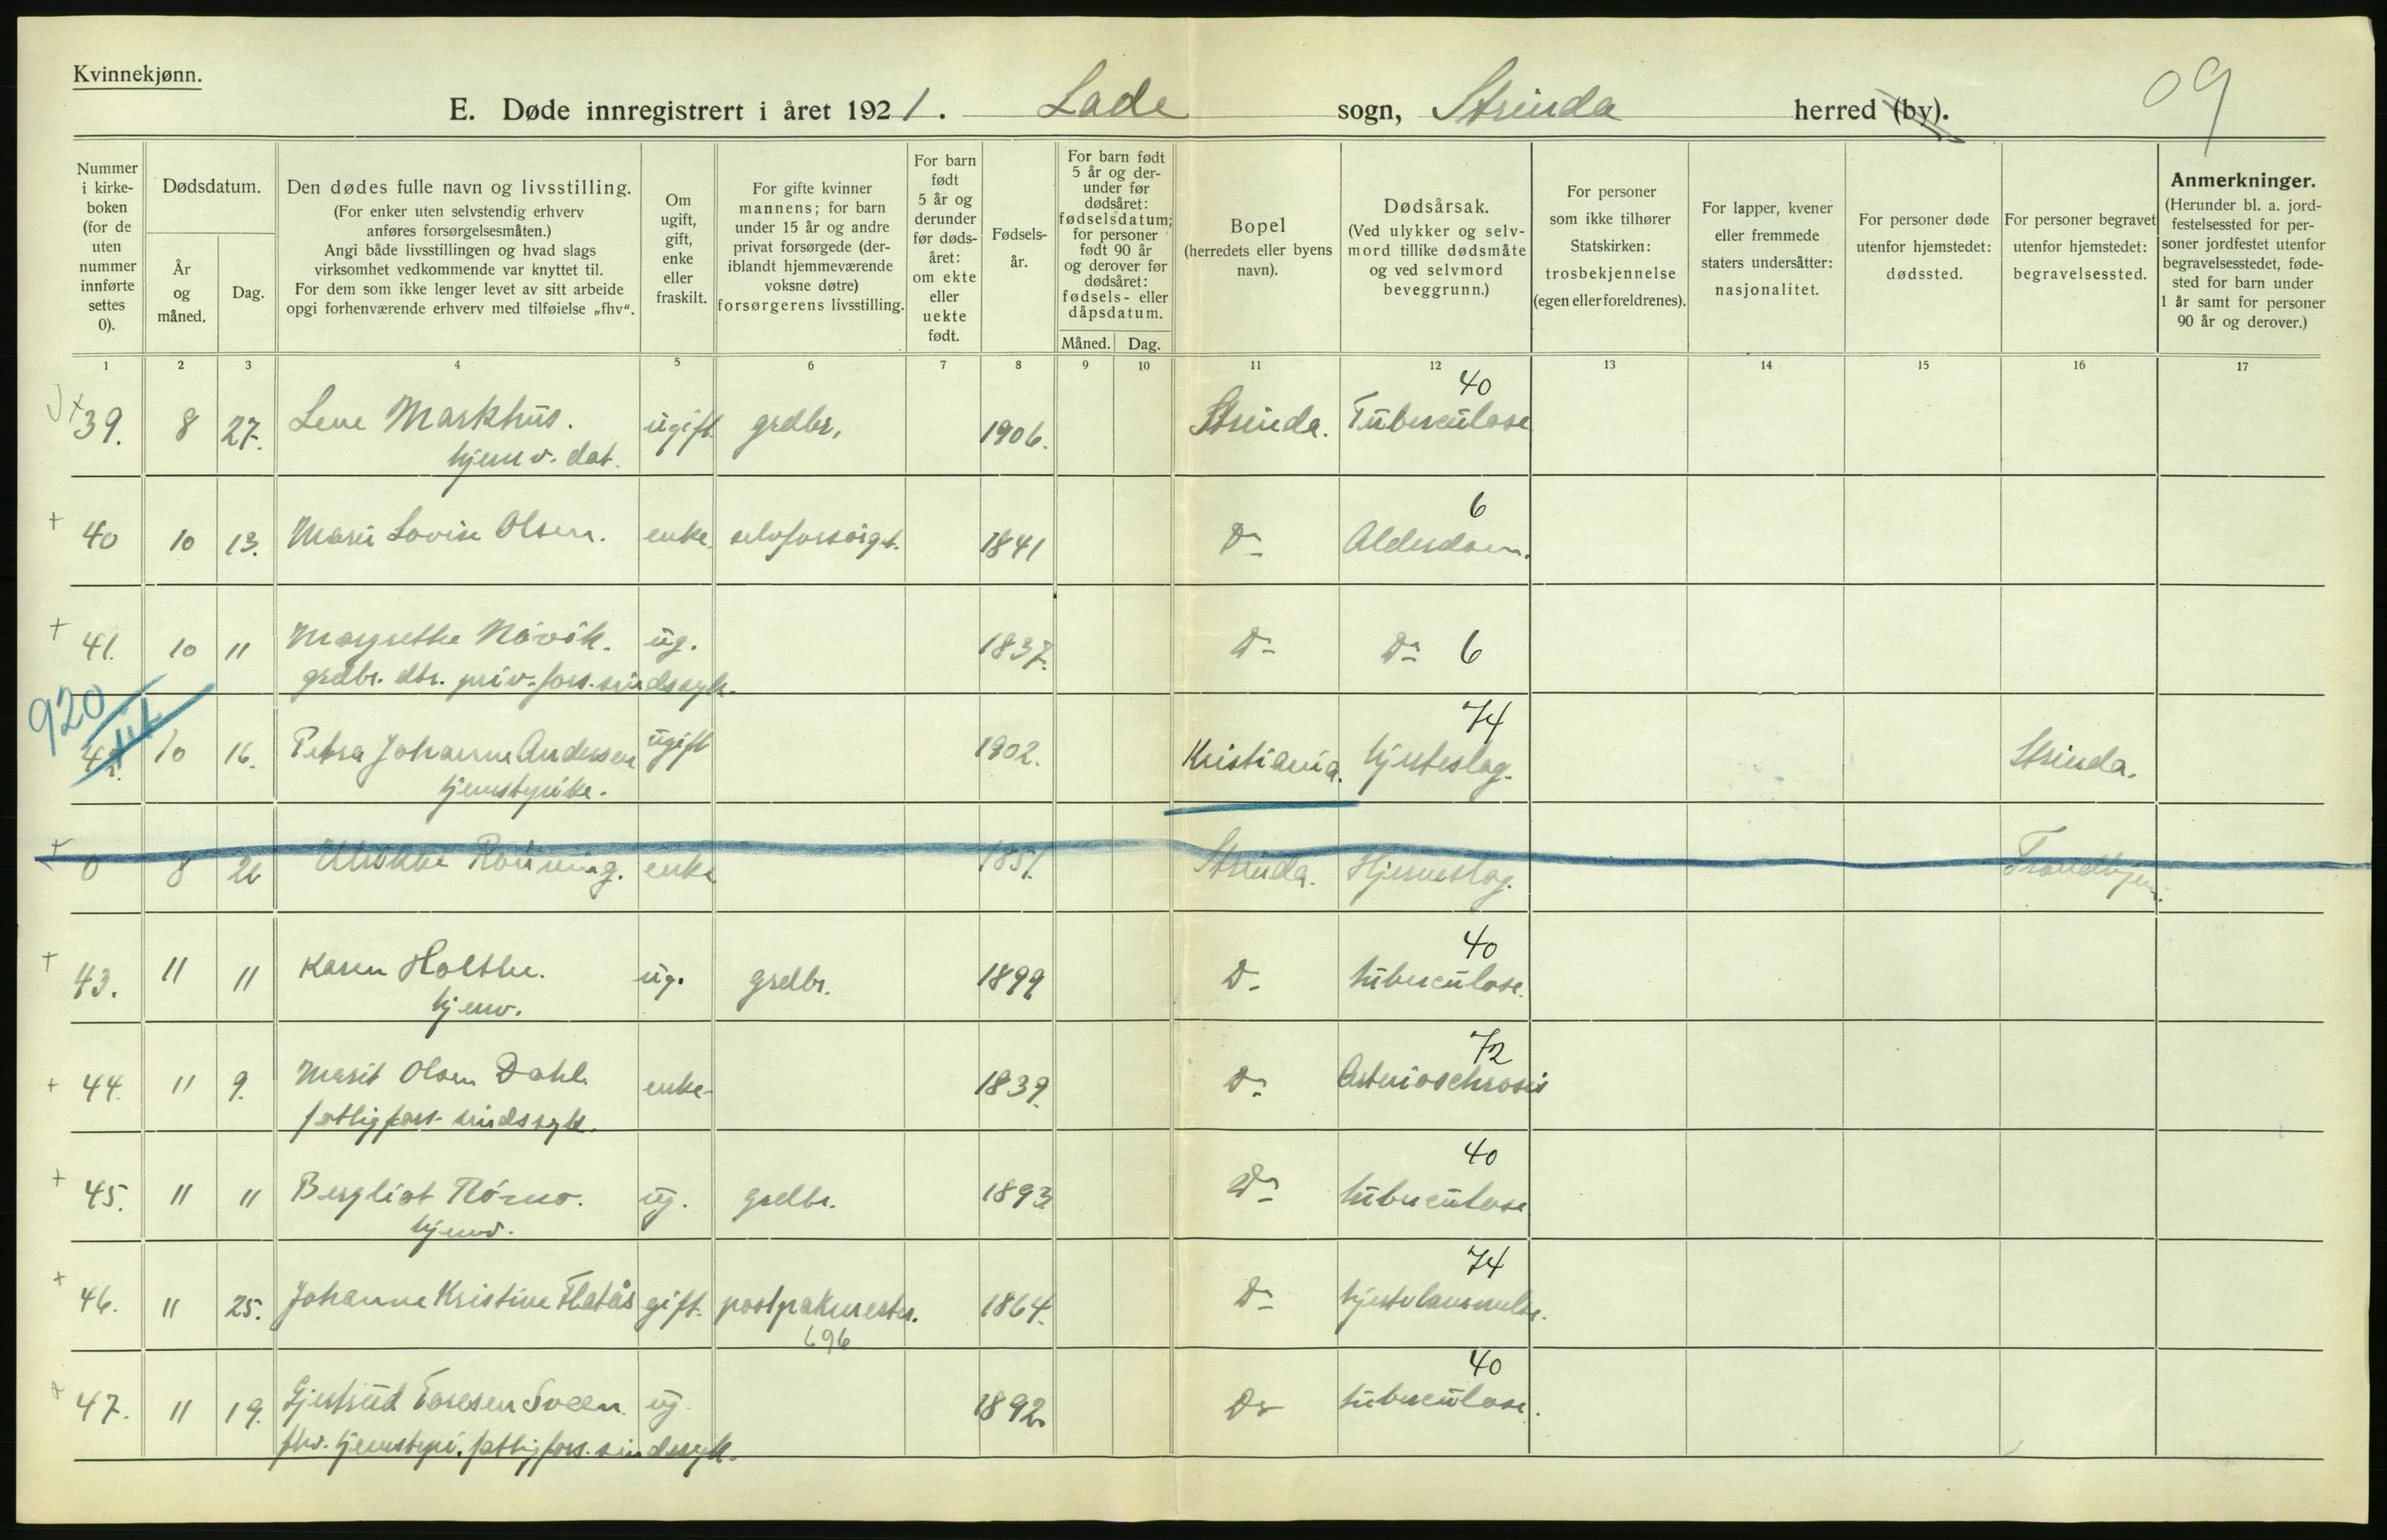 Kvinnekjønn.
09
E. Døde innregistrert i året 1921. Lade sogn, Strinda herred (by).
Nummer i kirke-boken (for de uten nummer innførte settes 0).
Dødsdatum.
År og måned.
Dag.
Den dødes fulle navn og livsstilling.
(For enker uten selvstendig erhverv anføres forsørgelsesmåten.)
Angi både livsstillingen og hvad slags virksomhet vedkommende var knyttet til.
For dem som ikke lenger levet av sitt arbeide opgi forhenværende erhverv med tilføielse „fhv“.
Om ugift, gift, enke eller fraskilt.
For gifte kvinner mannens; for barn under 15 år og andre privat forsørgede (deriblandt hjemmeværende voksne døtre) forsørgerens livsstilling.
For barn født 5 år og derunder før dødsåret: om ekte eller uekte født.
Fødsels-år.
For barn født 5 år og derunder før dødsåret: fødselsdatum; for personer født 90 år og derover før dødsåret: fødsels- eller dåpsdatum.
Måned. Dag.
Bopel (herredets eller byens navn).
Dødsårsak.
(Ved ulykker og selvmord tillike dødsmåte og ved selvmord beveggrunn.)
For personer som ikke tilhører Statskirken: trosbekjennelse (egen eller foreldrenes).
For lapper, kvener eller fremmede staters undersåtter: nasjonalitet.
For personer døde utenfor hjemstedet: dødssted.
For personer begravet utenfor hjemstedet: begravelsessted.
Anmerkninger.
(Herunder bl. a. jordfestelsessted for personer jordfestet utenfor begravelsesstedet, fødested for barn under 1 år samt for personer 90 år og derover.)
1 2 3 4 5 6 7 8 9 10 11 12 13 14 15 16 17
40
39. 8 27. Lene Markhus. ugift grdbr. 1906. Strinda. Tuberculose
hjemv. dat.
6
40 10 13. Marie Lovise Olsen. enke. selvforsørget. 1841 Do Alderdom.
41. 10 11 Margrethe Növik. ug. 1837. Do Do 6
grdbr. dtr. priv. fors. sindssyk.
920
74
42. 10 16. Petra Johanne Andersen ugift 1902. Kristiania. hjerteslag. Strinda.
tjenstepike.
0 8 26 Ulrikke Rönning. enke 1851. Strinda. Hjerneslag. Trondhjem.
40
43. 11 11 Karen Holthe. ug. grdbr. 1899 Do tuberculose.
hjemv.
72
44. 11 9. Marit Olsen Dahl enke 1839. Do Arterioschrosis
fattigfors. sindssyk.
40
45. 11 11 Bergliot ug. grdbr. 1893 Do tuberculose
hjemv.
74
46. 11 25. Johanne Kristine Flatås gift. postpakmester. 1864. Do hjertelammelse.
696
40
47. 11 19. Gjertrud Toresen Sveen ug. 1892. Do tuberculose.
fhv. tjenstepi. fattigfors. sindssyk.